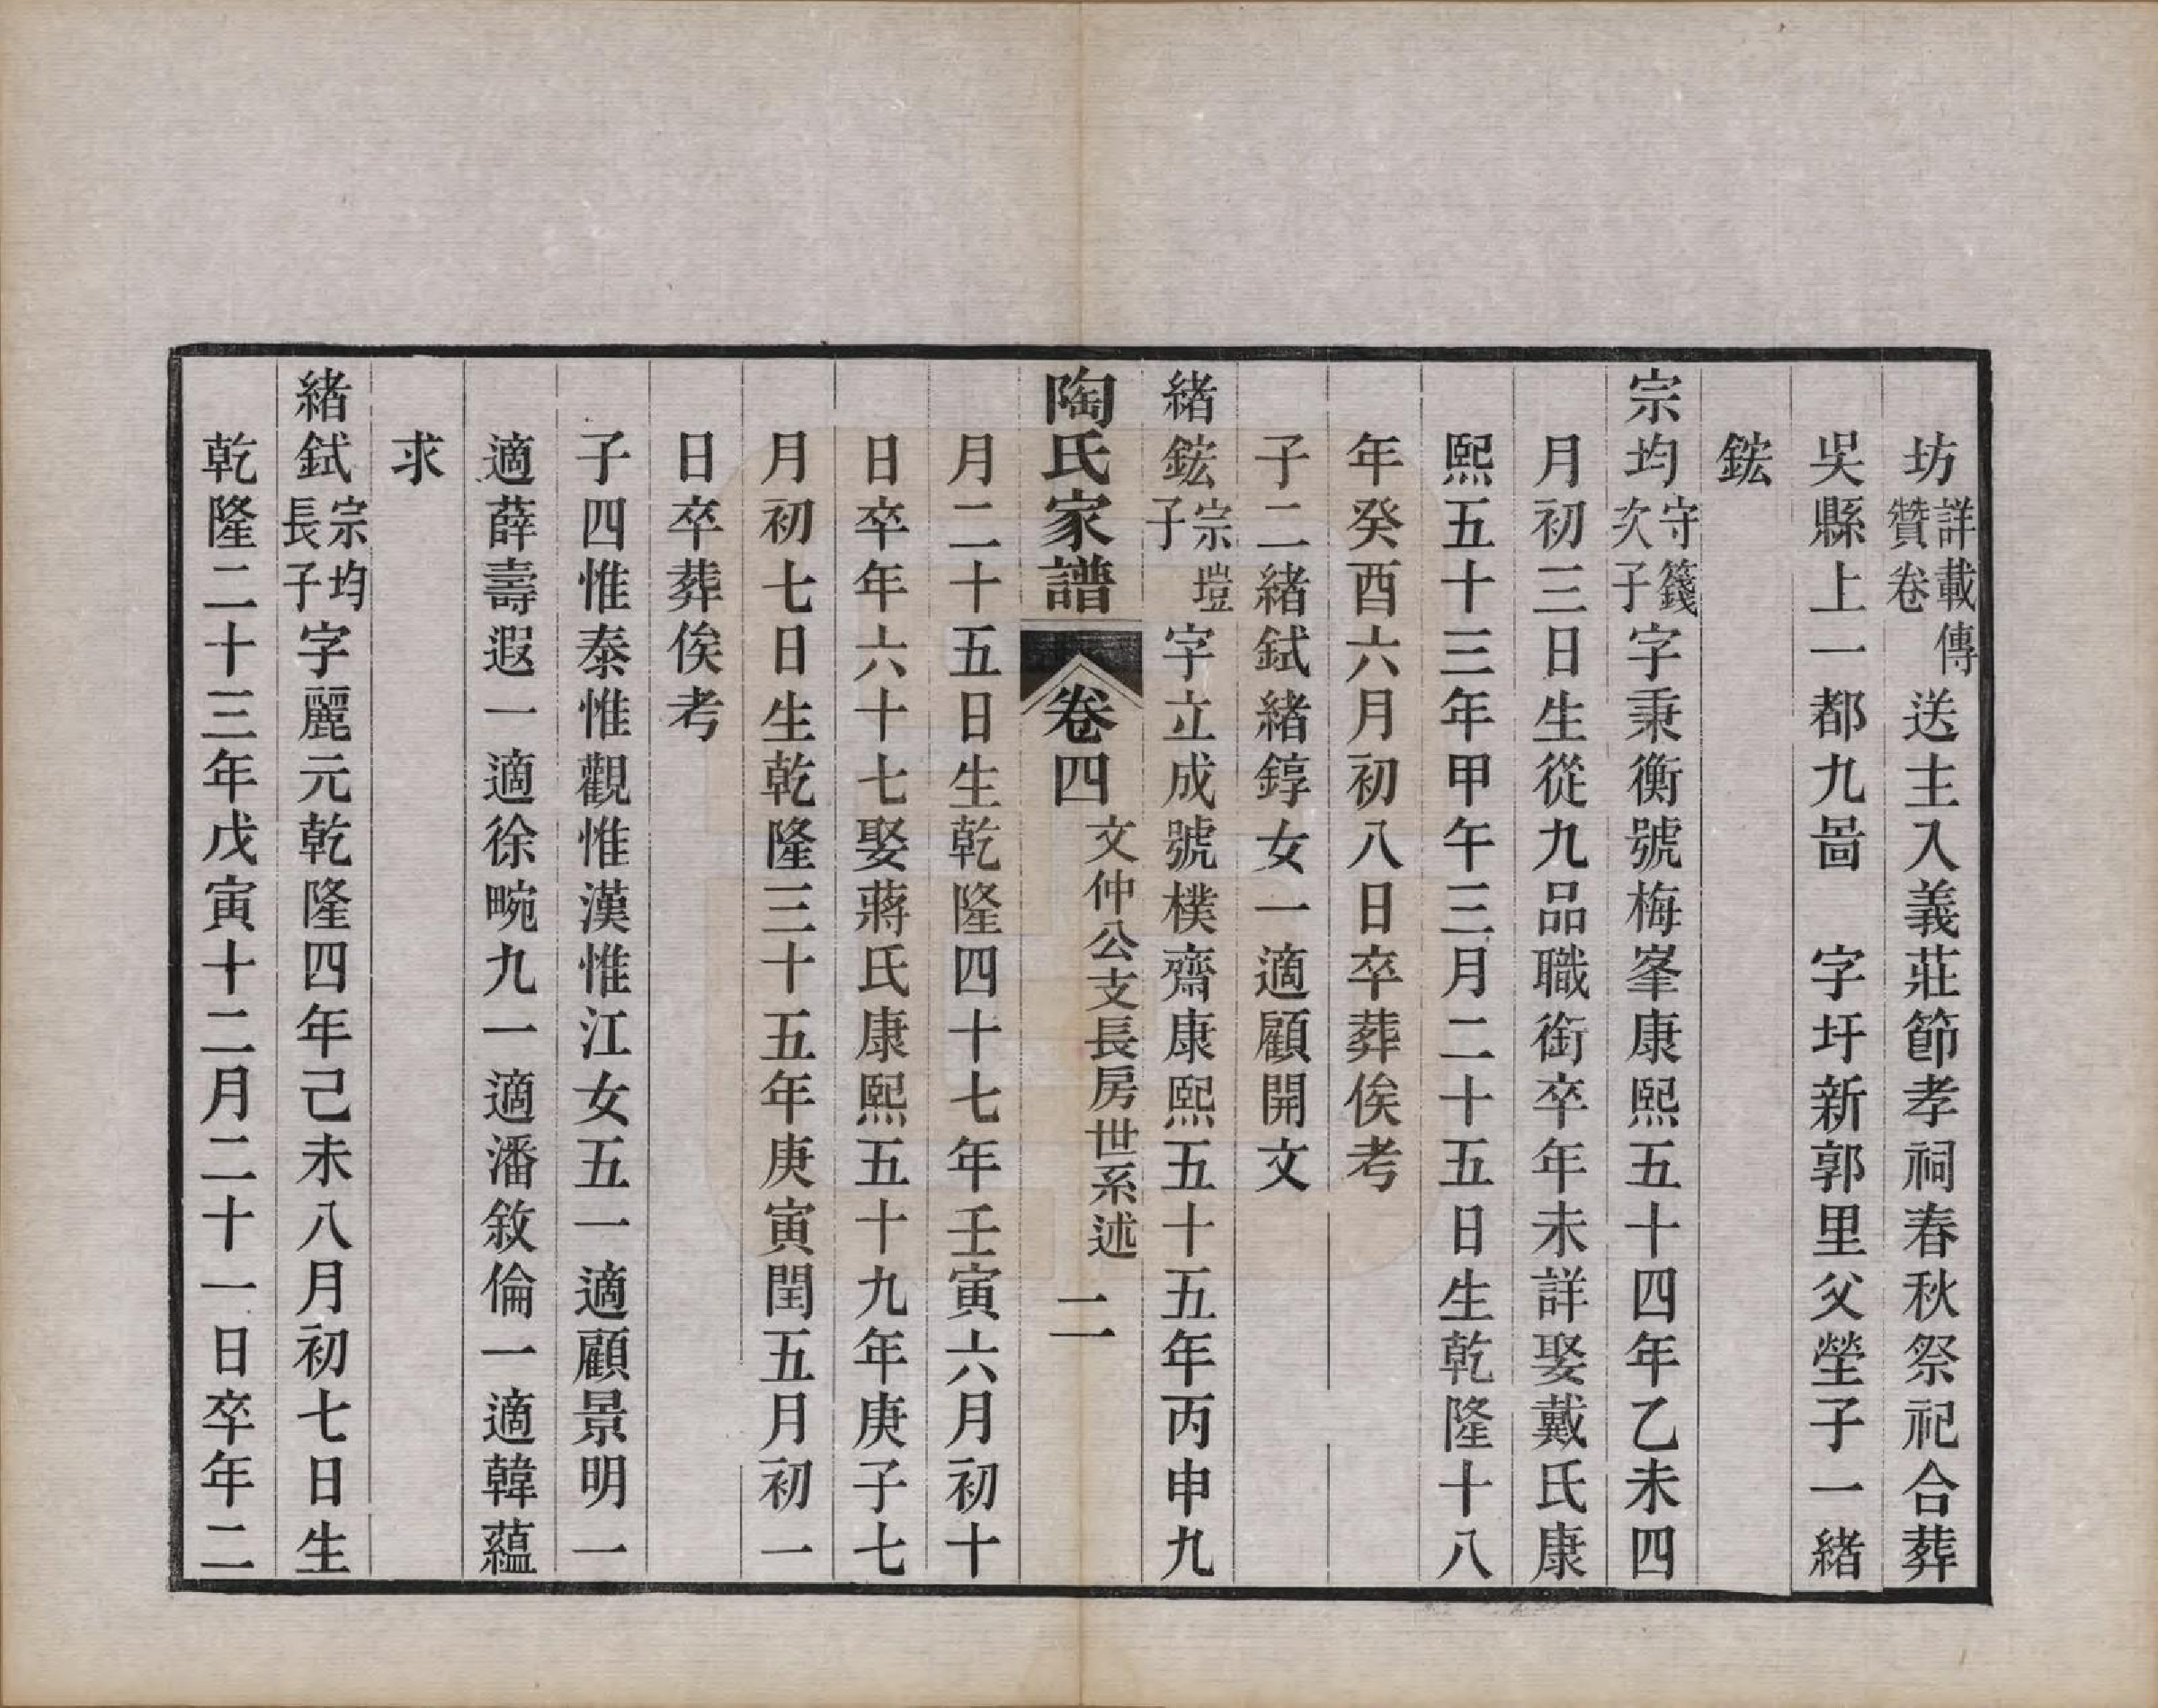 坊詳載傳贊卷送主入義莊節孝祠春秋祭祀合葬
吳縣上一都九啚　字圩新郭里父塋子一緒
鋐
宗均守箋次子字秉衡號梅峯康熙五十四年乙未四
月初三日生從九品職銜卒年未詳娶戴氏康
熙五十三年甲午三月二十五日生乾隆十八
年癸酉六月初八日卒葬俟考
子二緒鉽緒錞女一適顧開文
緒鋐宗塏子字立成號樸齋康熙五十五年丙申九
陶氏家譜　卷四　文仲公支長房世系述　二
月二十五日生乾隆四十七年壬寅六月初十
日卒年六十七娶蔣氏康熙五十九年庚子七
月初七日生乾隆三十五年庚寅閏五月初一
日卒葬俟考
子四惟泰惟觀惟漢惟江女五一適顧景明一
適薛壽遐一適徐畹九一適潘敘倫一適韓蘊
求
緒鉽宗均長子字麗元乾隆四年己未八月初七日生
乾隆二十三年戊寅十二月二十一日卒年二